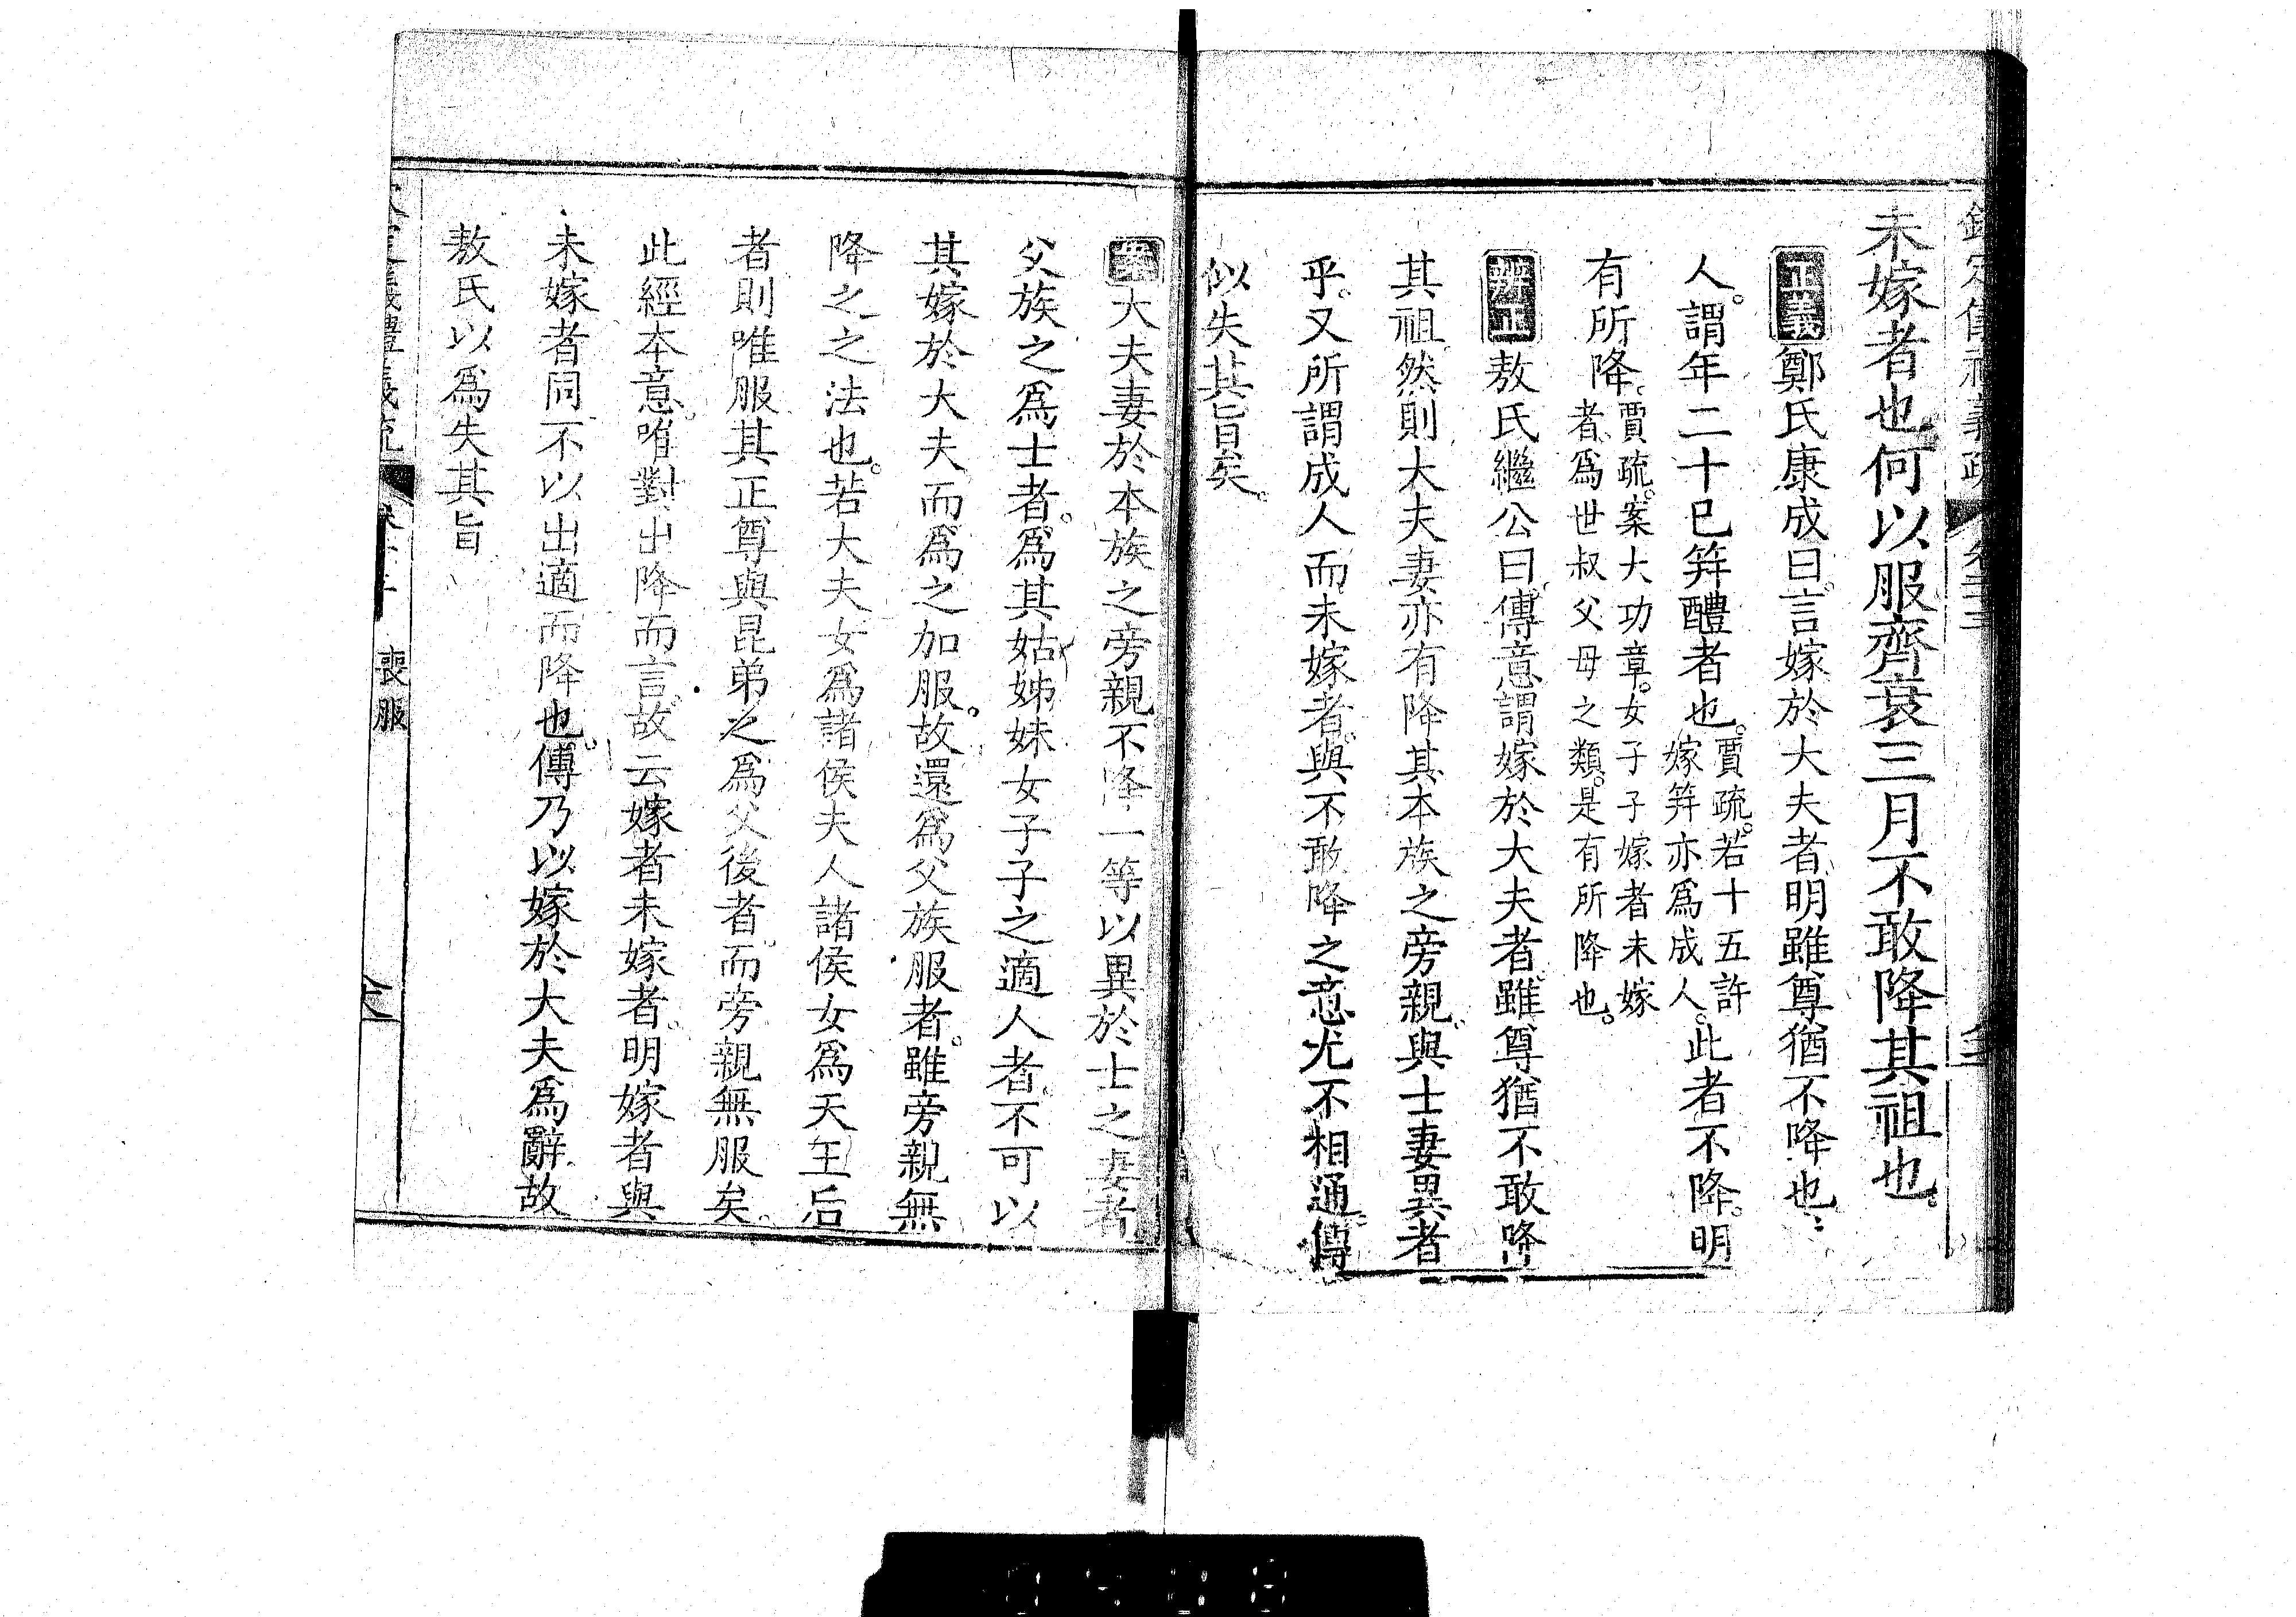 未嫁者也何以服齊衰三月不敢降其祖也。
正義鄭氏康成曰。言嫁於大夫者明雖尊猶不降也。
人。謂年二十已笄醴者也。賈疏。若十五許嫁笄亦爲成人。此者不降。明
有所降。賈疏。案大功章。女子子嫁者未嫁者、爲世叔父母之類。是有所降也。
辨正敖氏繼公曰。傳意謂嫁於大夫者、雖尊猶不敢降
其祖然則大夫妻亦有降其本族之旁親、與士妻異者
乎。又所謂成人而未嫁者。與不敢降之意尤不相通。傳
似失其旨矣。
案大夫妻於本族之旁親不降一等以異於士之妻者
父族之爲士者。爲其姑姊妹女子子之適人者。不可以
其嫁於大夫而爲之加服。故還爲父族服者。雖旁親無
降之之法也。若大夫女爲諸侯夫人諸侯女爲天王后
者則唯服其正尊與昆弟之爲父後者。而旁親無服矣。
此經本意。唯對出降而言。故云嫁者未嫁者。明嫁者與
未嫁者同不以出適而降也。傳乃以嫁於大夫爲辭。故
敖氏以爲失其旨
喪服